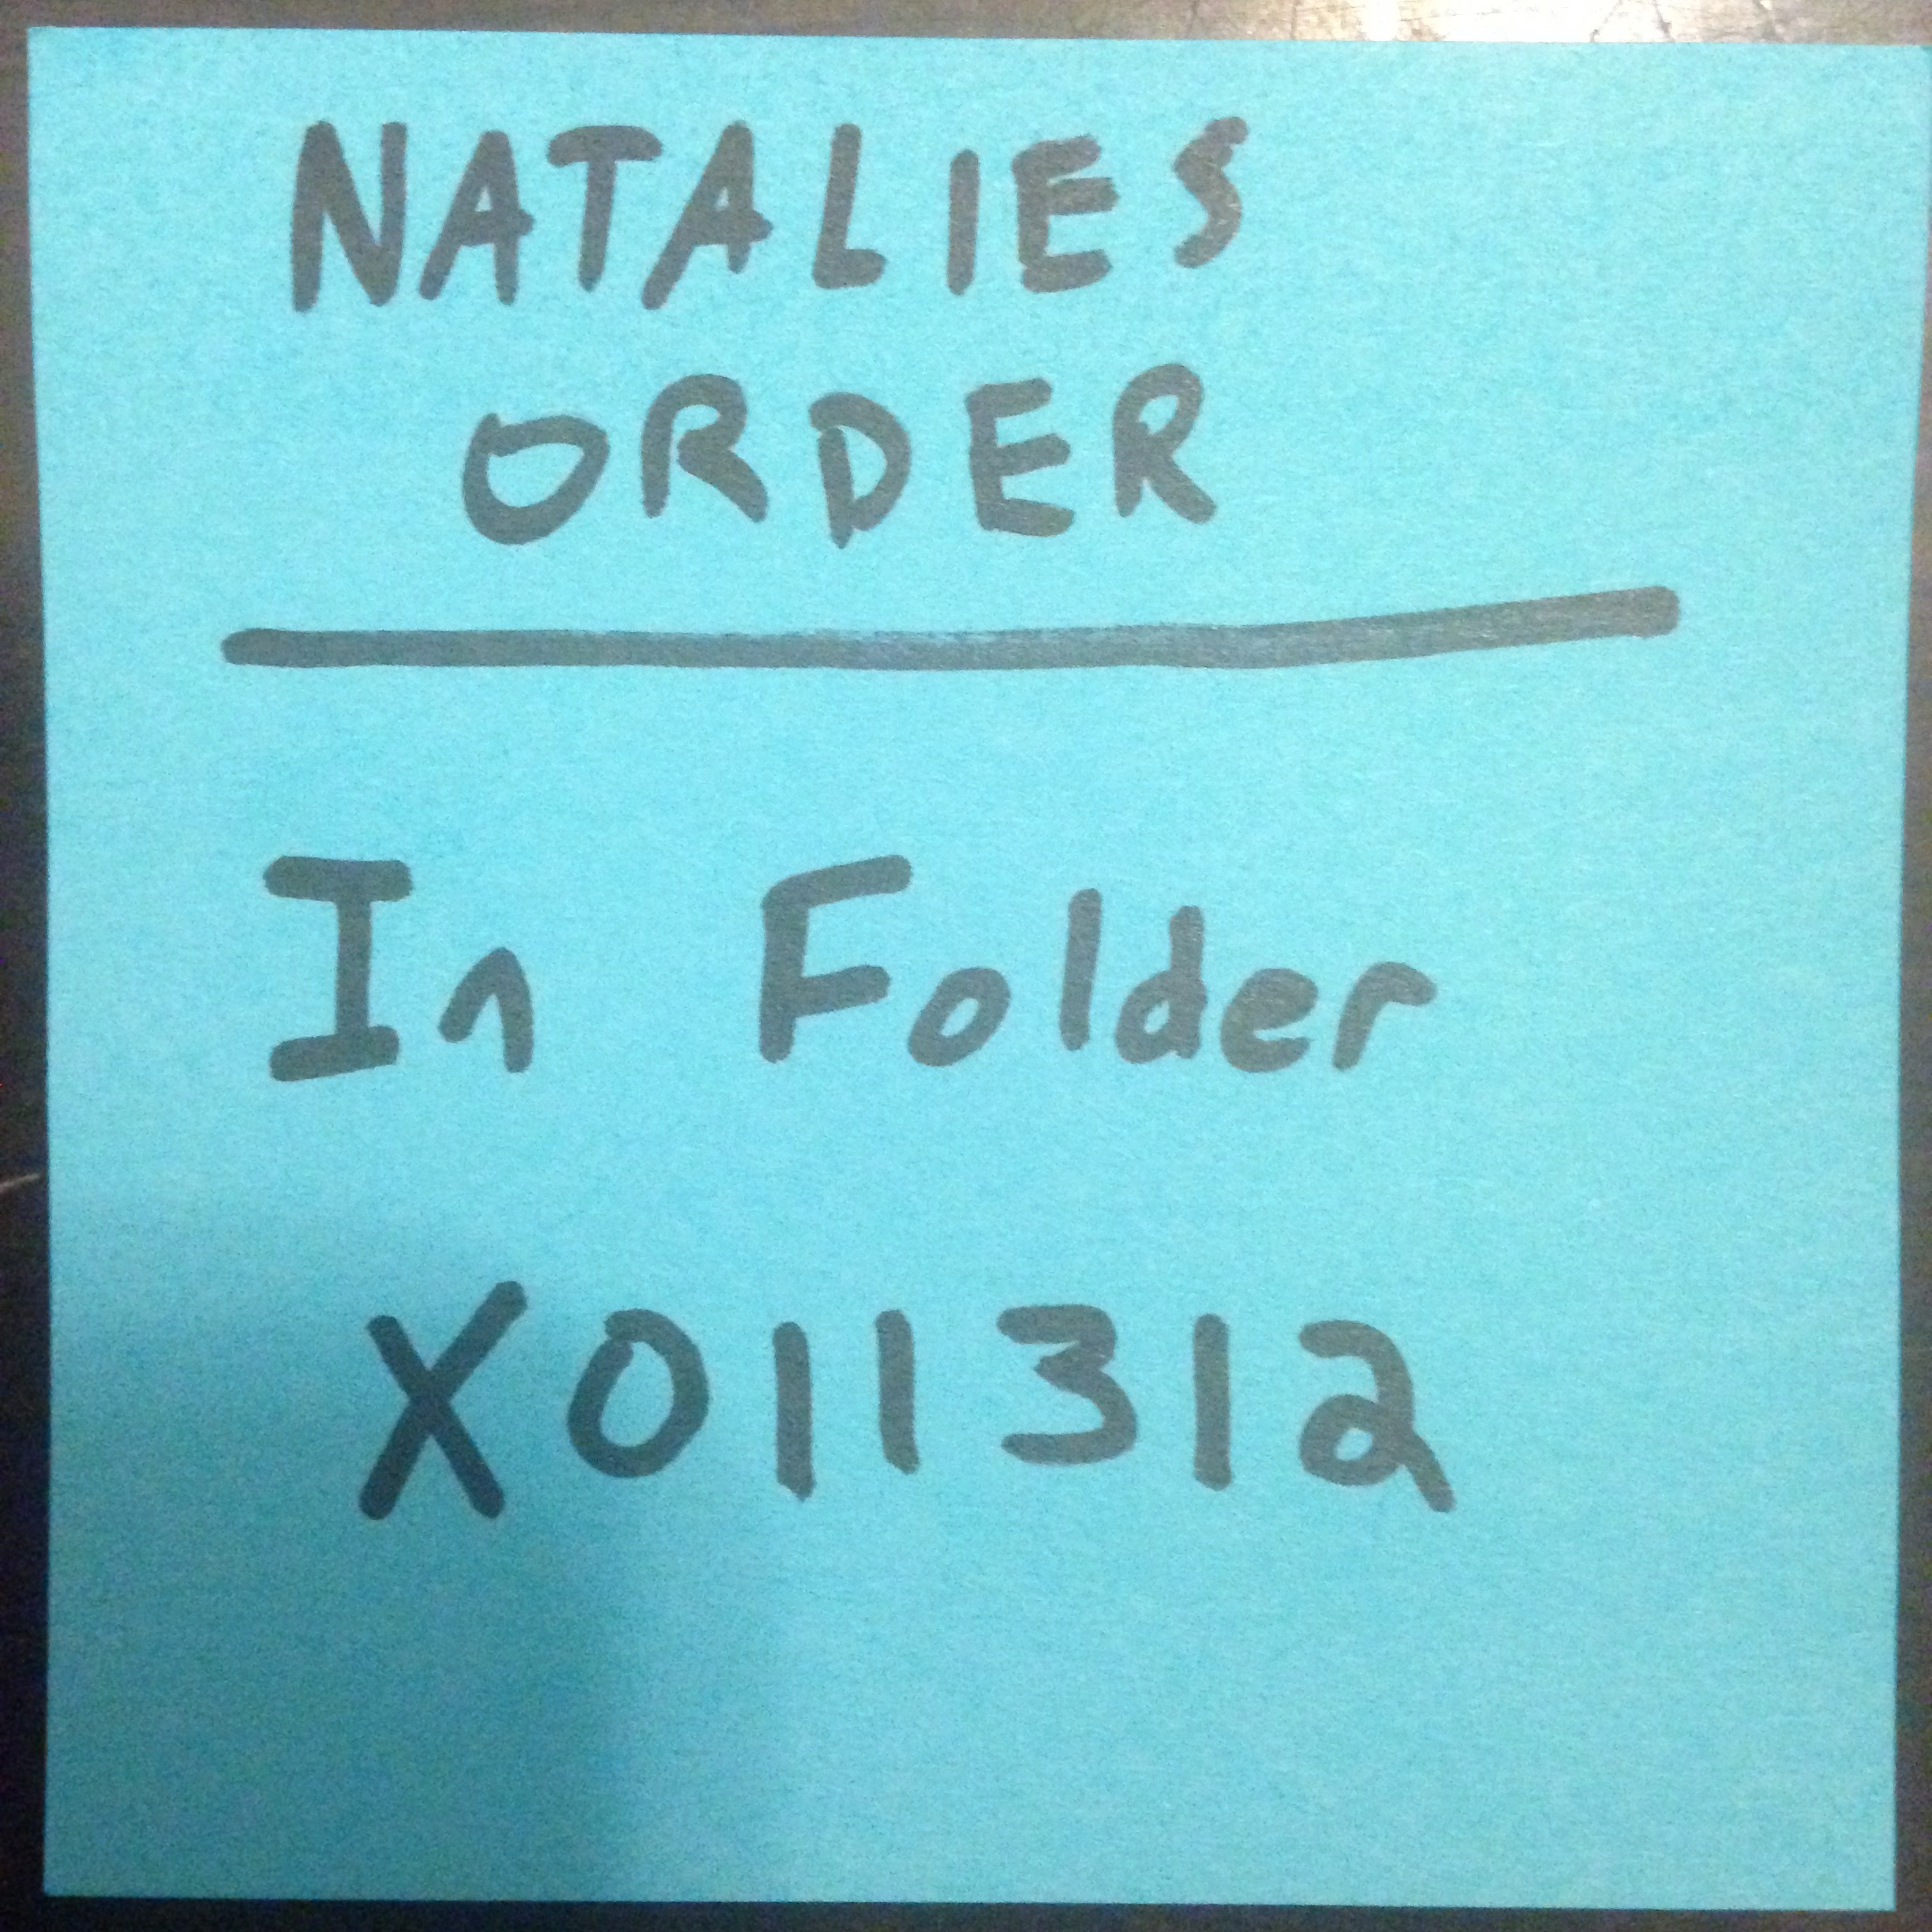 NATALIES
ORDER
In Folder
X011312